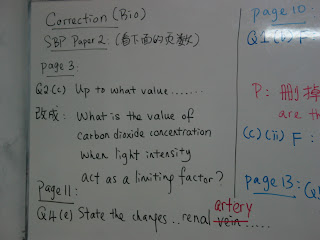 Correction (Bio)
SBP Paper 2: (看下面的页数)
page 3:
Q2(c) Up to what value .......
改成: What is the value of
carbon dioxide concentration
when light intensity
act as a limiting factor?
page 11:
artery
Q4(e) State the changes .. renal vein .....
page 10:
Q1(b) F
P: 删掉
are th
(c)(ii) F:
page 13: